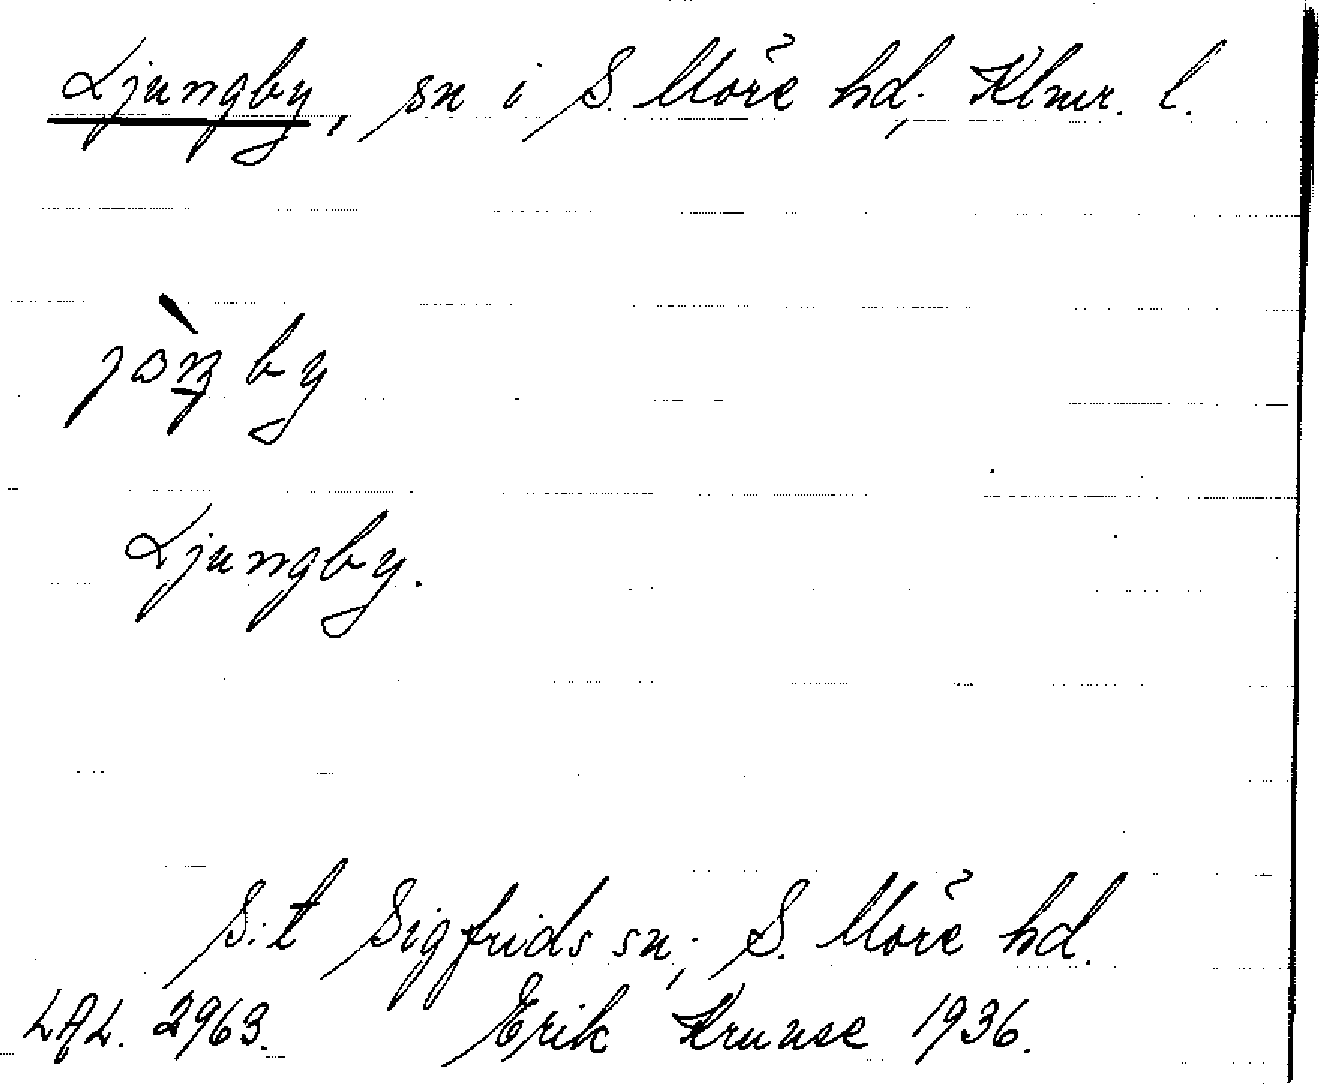 Ljungby, sn i S. Möre hd, Klmr. l.
Ljungby.
S:t Sigfrids sn, S. Möre hd.
LAL. 2963. Erik Kruuse 1936.